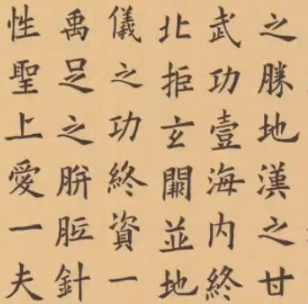 之勝地漢之甘
武功壹海内終
北拒玄闕並地
儀之功終資一
禹足之胼胝針
性聖上愛一夫